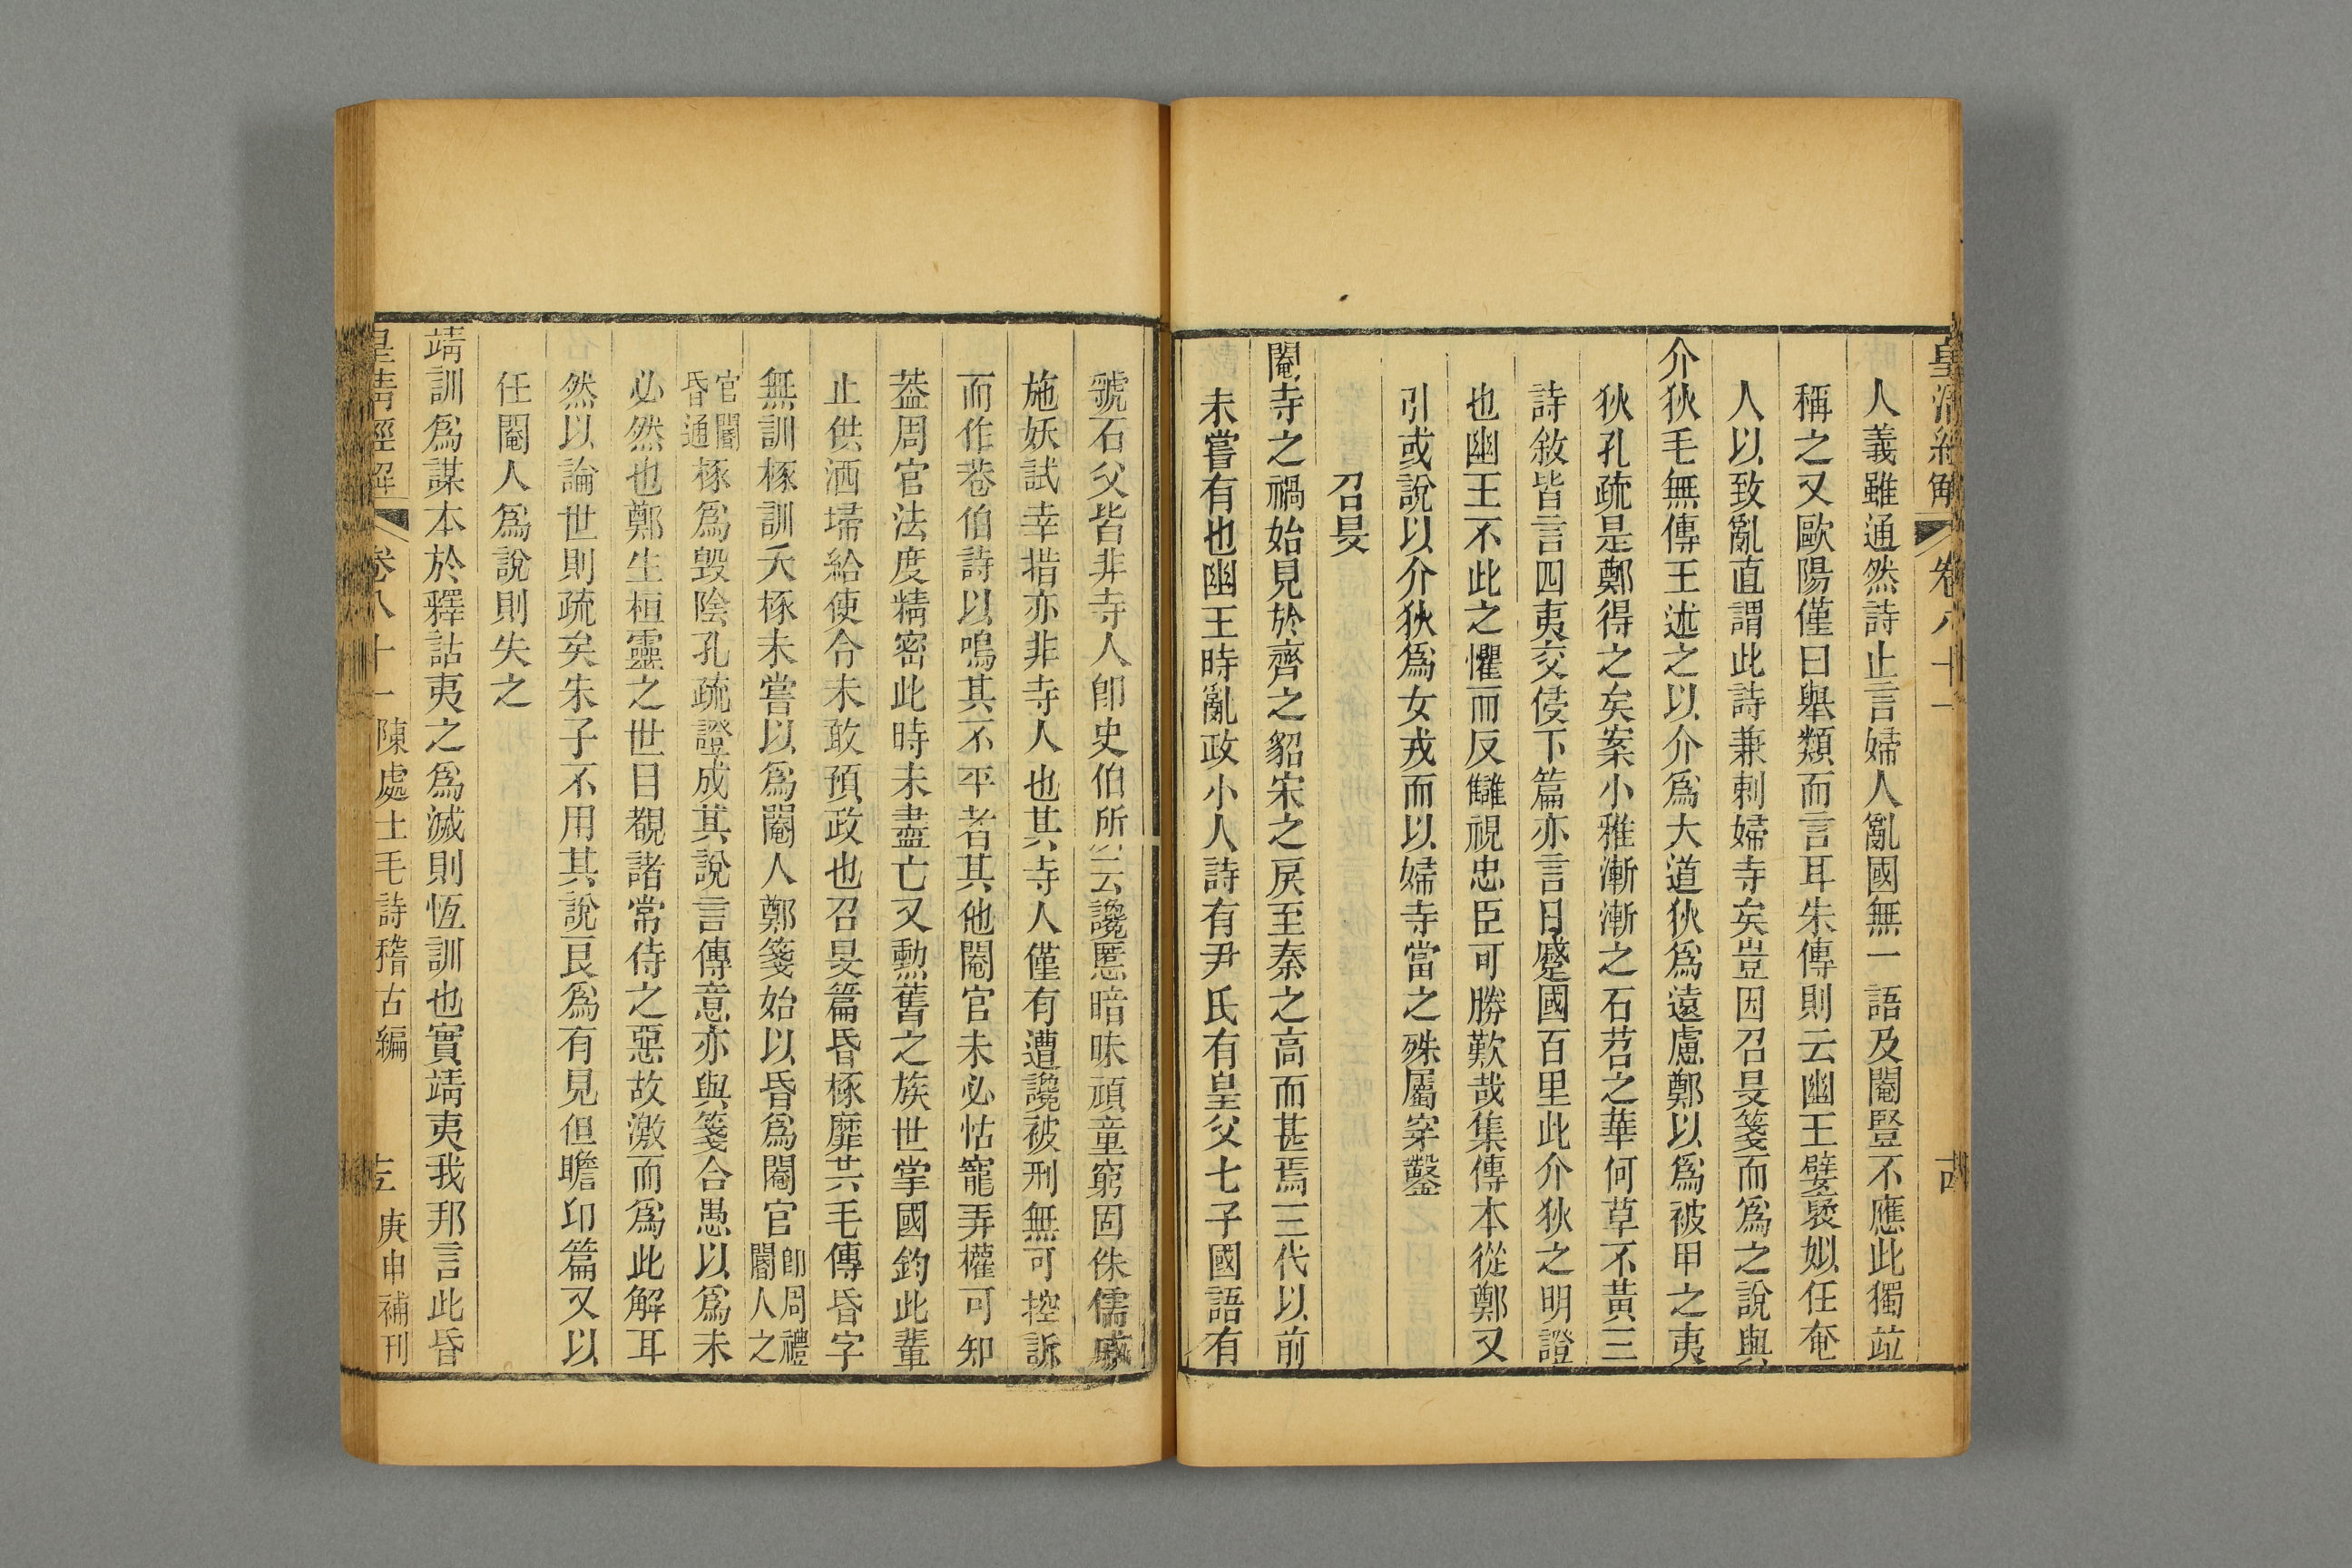 皇清經解 卷八十一 古
人義雖通然詩止言婦人亂國無一語及閹豎不應此獨竝
稱之又歐陽僅曰舉類而言耳朱傳則云幽王嬖褒姒任奄
人以致亂直謂此詩兼刺婦寺矣豈因召旻箋而爲之說與
介狄毛無傳王述之以介爲大道狄爲遠慮鄭以爲被甲之夷
狄孔疏是鄭得之矣案小雅漸漸之石苕之華何草不黃三
詩敘皆言四夷交侵下篇亦言日蹙國百里此介狄之明證
也幽王不此之懼而反讎視忠臣可勝歎哉集傳本從鄭又
引或說以介狄爲女戎而以婦寺當之殊屬穿鑿
召旻
閹寺之禍始見於齊之貂宋之戾至秦之高而甚焉三代以前
未嘗有也幽王時亂政小人詩有尹氏有皇父七子國語有
虢石父皆非寺人卽史伯所云讒慝暗昧頑童窮固侏儒戚
施妖試幸措亦非寺人也其寺人僅有遭讒被刑無可控訴
而作巷伯詩以鳴其不平者其他閹官未必怙寵弄權可知
葢周官法度精密此時未盡亡又勳舊之族世掌國鈞此輩
止供洒埽給使令未敢預政也召旻篇昏椓靡共毛傳昏字
無訓椓訓夭椓未嘗以爲閹人鄭箋始以昏爲閹官卽周禮閽人之
官閽昏通椓爲毀陰孔疏證成其說言傳意亦與箋合愚以爲未
必然也鄭生桓靈之世目覩諸常侍之惡故激而爲此解耳
然以論世則疏矣朱子不用其說良爲有見但瞻卬篇又以
任閹人爲說則失之
靖訓爲謀本於釋詁夷之爲滅則恆訓也實靖夷我邦言此昏
皇清經解 卷八十一 陳處士毛詩稽古編 庚申補刊